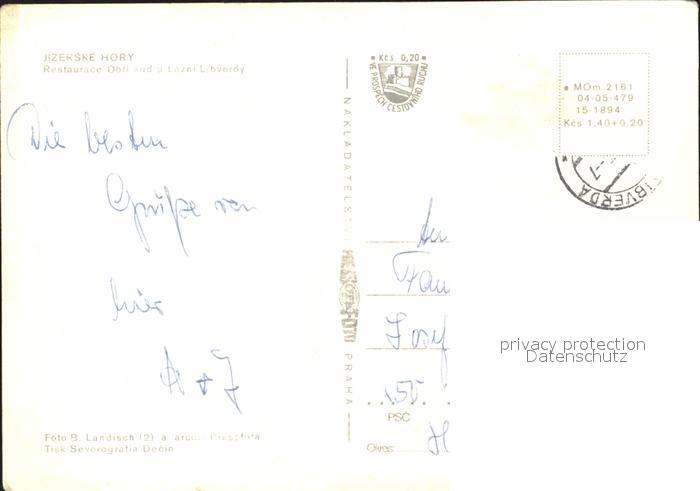 JIZERSKÉ HORY
Restaurace Obří sud u Lázní Libverdy
Die besten
Grüße von
hier
A + J
Foto B. Landisch (2) a archiv Pressfoto
Tisk Severografia Děčín
NAKLADATELSTVÍ PRESSFOTO PRAHA
Kčs 0,20
VE PROSPĚCH CESTOVNÍHO RUCHU
MOm 2161
04-05-479
15-1894
Kčs 1,40+0,20
LIBVERDA
An
Fam
Josef
PSČ
Okres
privacy protection
Datenschutz